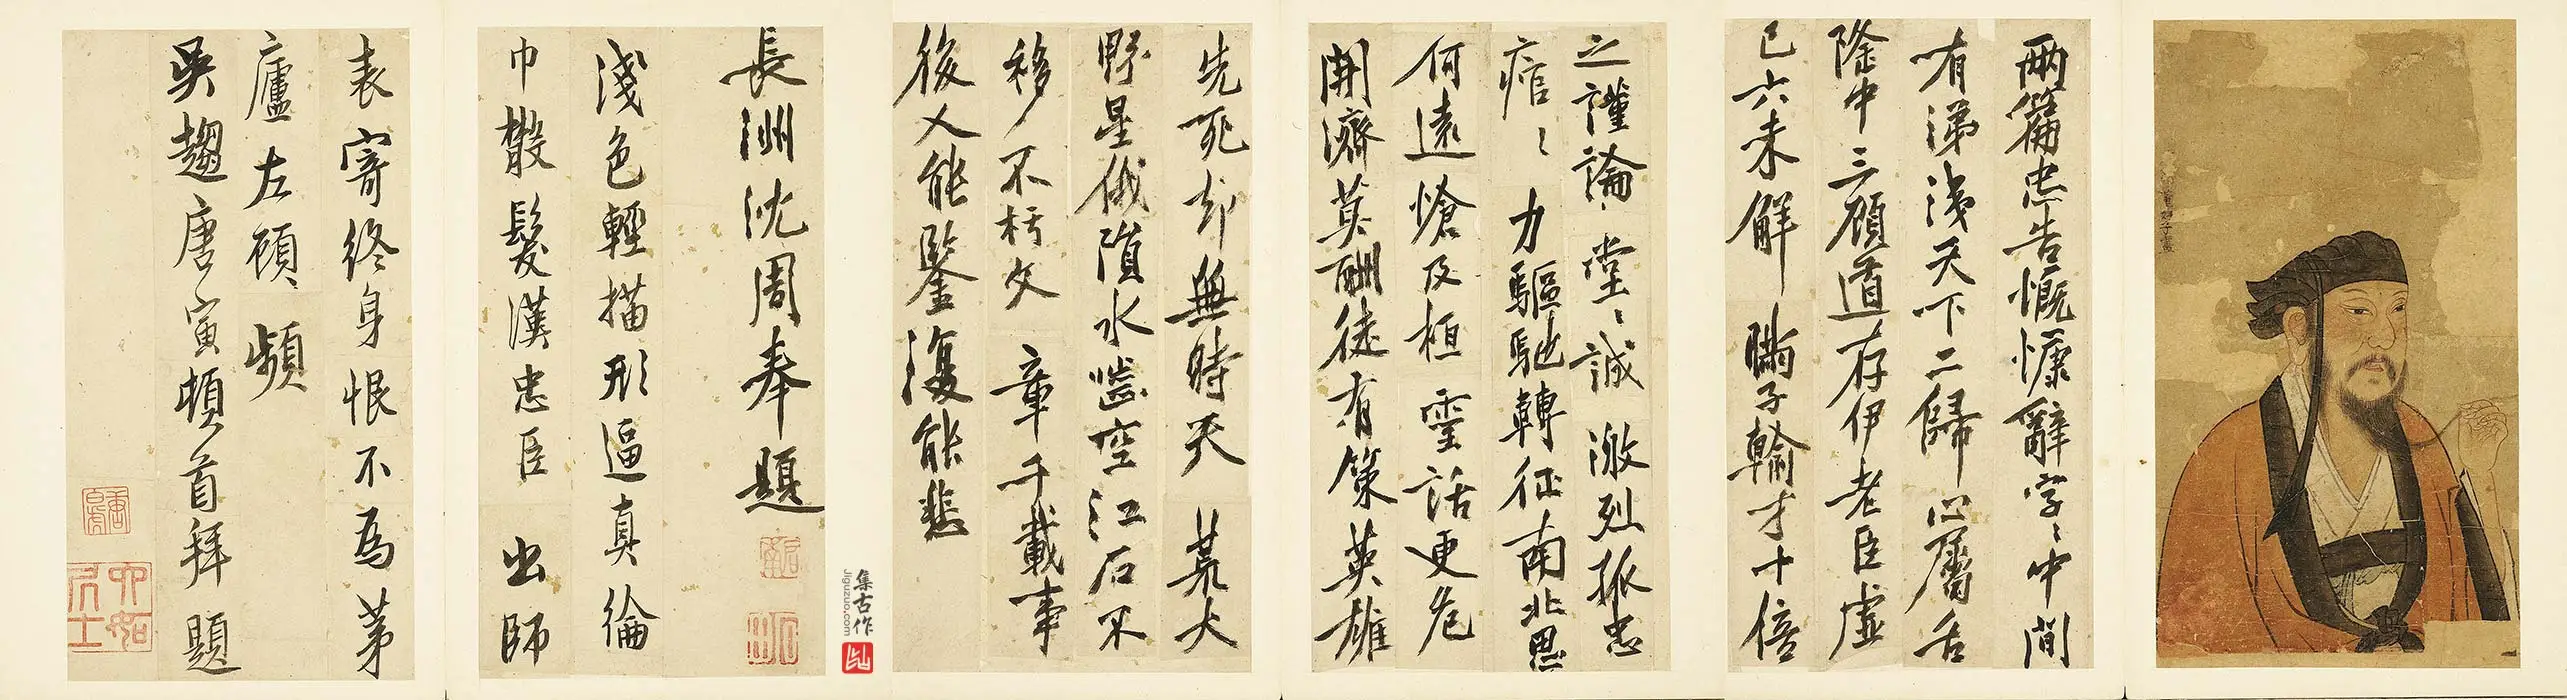 兩篇忠告慨慷辭字〻中間
有涕洟天下二歸心屬舌
隆中三顧道存伊老臣虛
已六未解瞞子輸才十倍
之謹論堂〻誠激烈孤忠
痯〻力驅馳轉征南北思
何遠愴及桓靈話更危
開濟莫酬徒有策英雄
先死却無時天荒大
野星俄隕水嚙空江石不
移不朽文章千載事
後人能鑒復能悲
長洲沈周奉題
淺色輕描形逼真綸
巾鬖髮漢忠臣出師
表寄終身恨不為茅
廬左顧頻
吳趨唐寅頓首拜題
六如居士
集古作
Jiguzuo.com